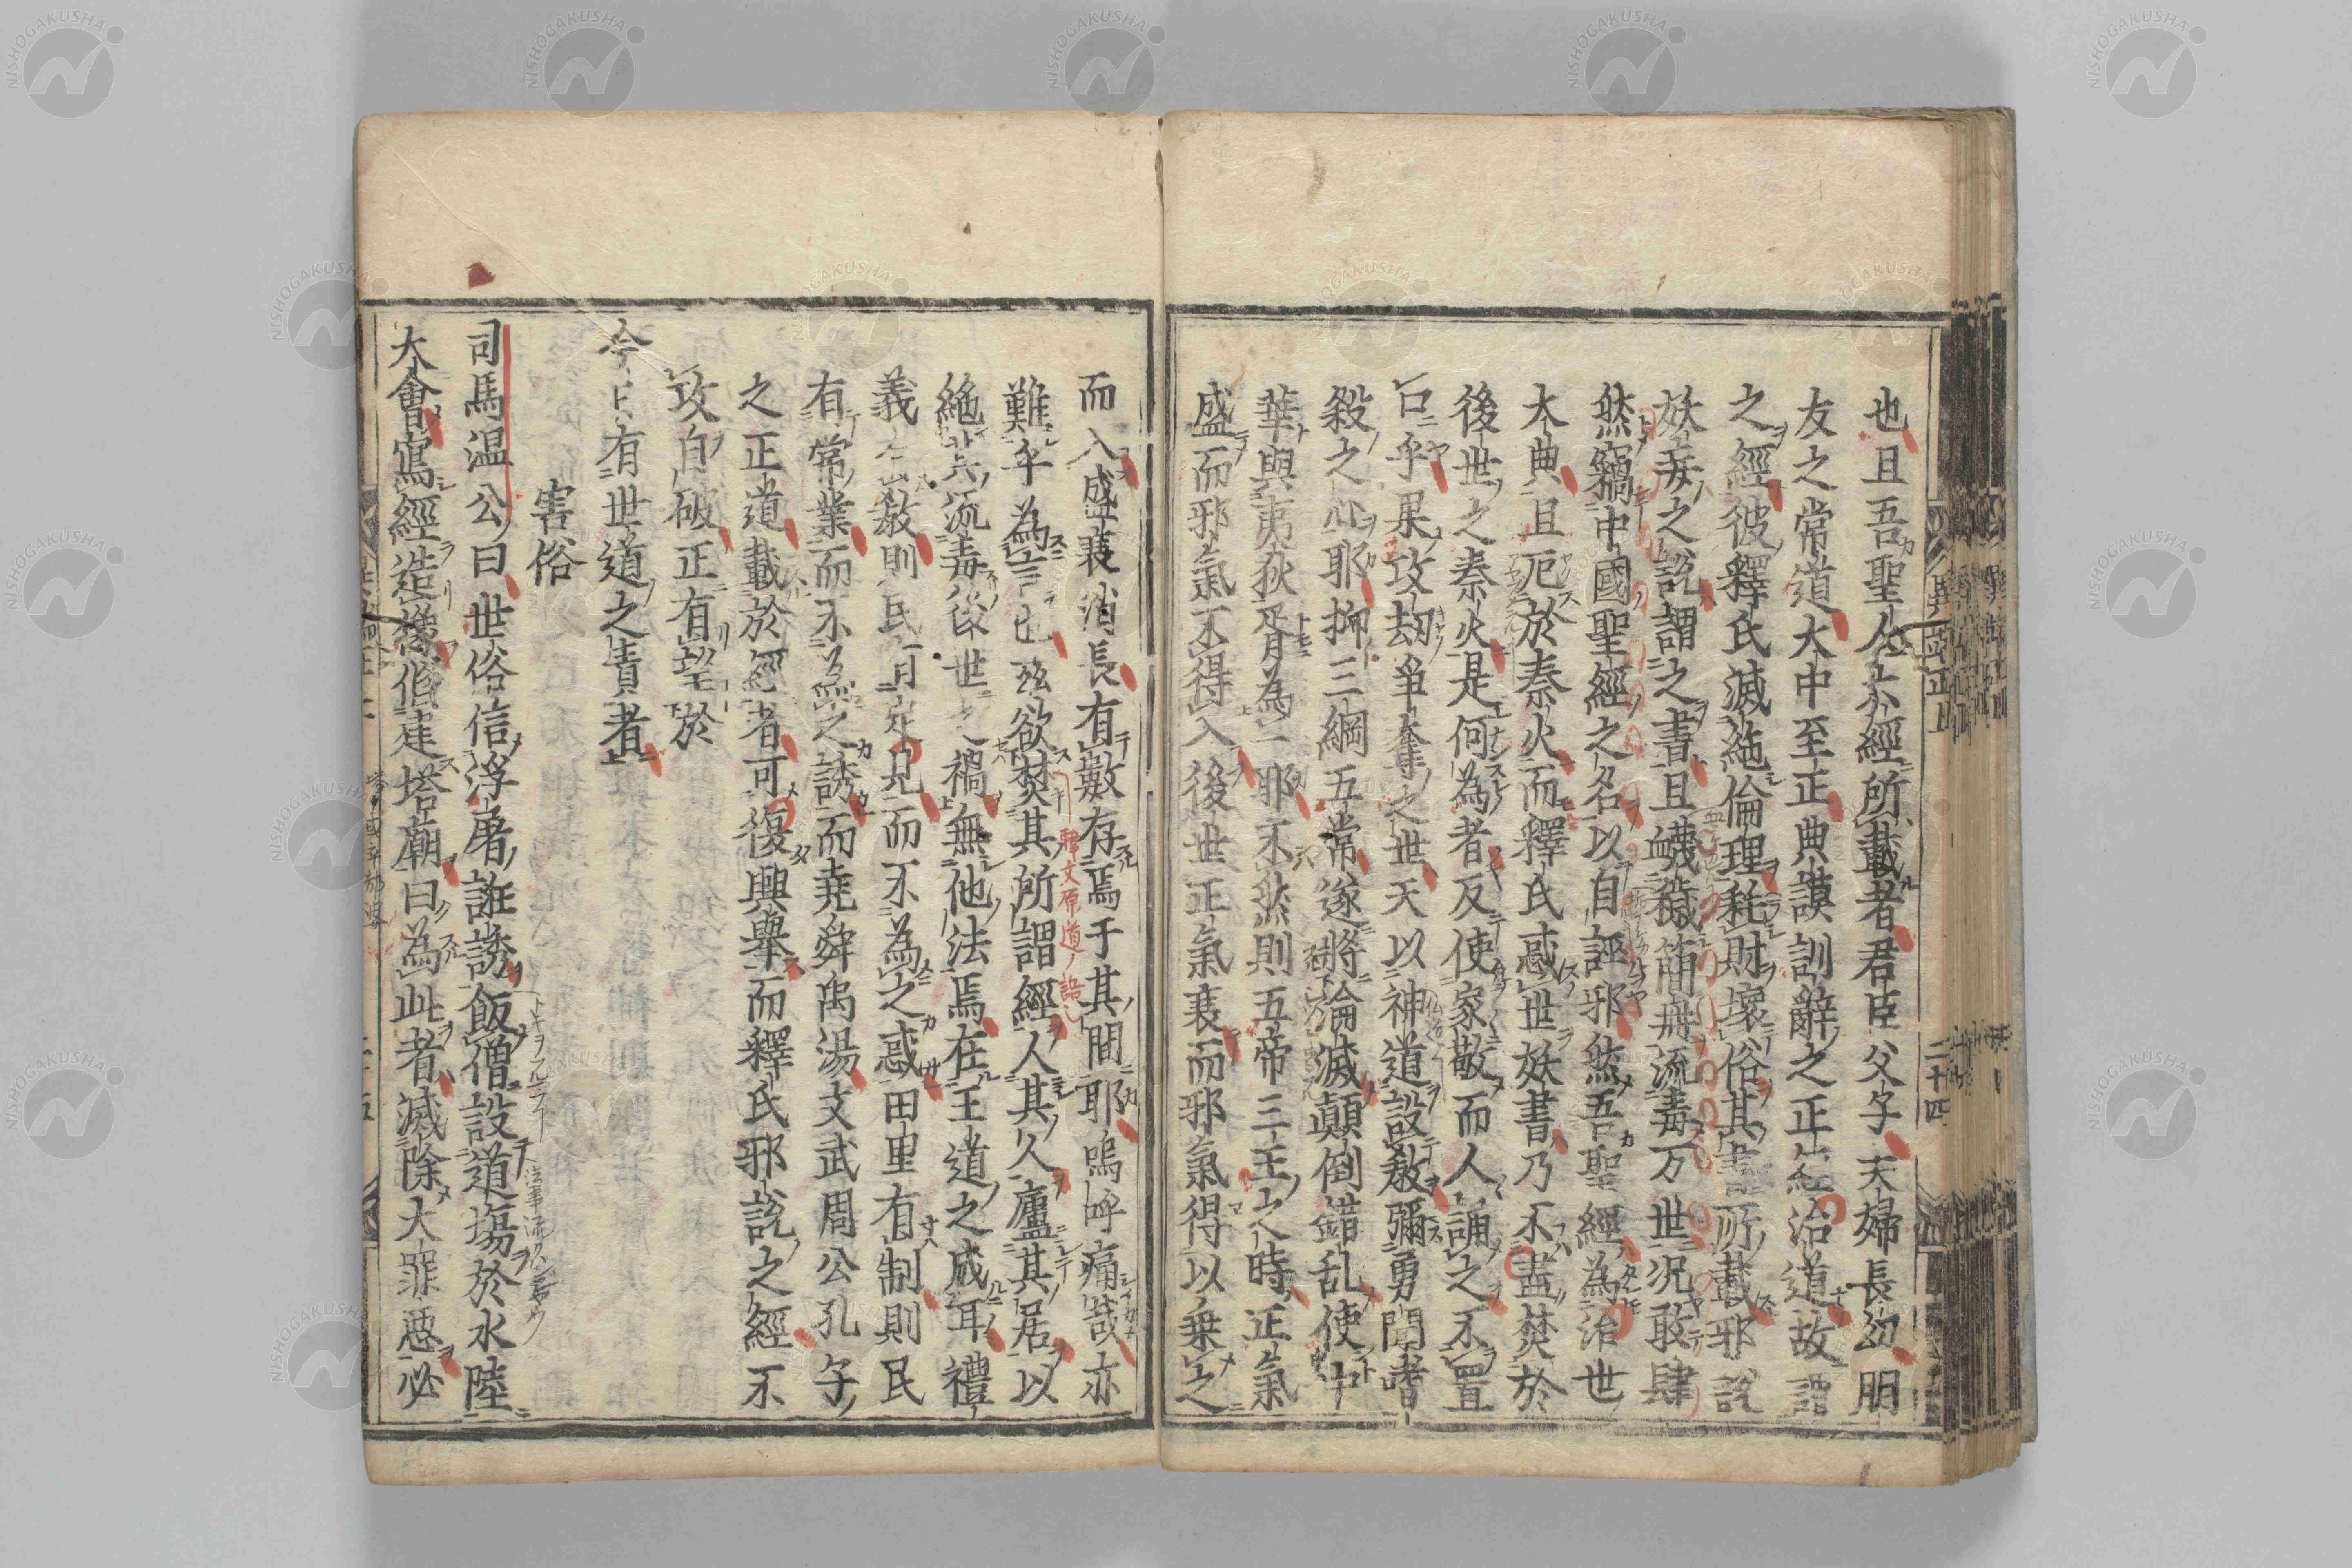 也且吾聖人六經所載者君臣父子夫婦長幼朋
友之常道大中至正典謨訓辭之正經治道故謂
之經彼釋氏滅絶倫理耗財壞俗其書所載邪說
妖妄之說謂之書且衊穢簡冊流毒万世况敢肆
然竊中國聖經之名以自誣邪然吾聖經為治世
大典且厄於秦火而釋氏惑世妖書乃不盡焚於
後世之秦火是何為者反使家敬而人誦之不置
口乎果攻劫爭奪之世天以神道設敎彌勇鬪嗜
殺之心耶抑三綱五常遂將淪滅顛倒錯乱使中
華與夷狄胥為一耶不然則五帝三王之時正氣
盛而邪氣不得入後世正氣衰而邪氣得以乗之
而入盛衰消長有數存焉于其間耶嗚呼痛哉亦
難乎為言也兹欲焚其所謂經人其人廬其居以
絶其流毒後世之禍無他法焉在王道之成耳禮
義之敎則民有定見而不為之惑田里有制則民
有常業而不為之誘而堯舜禹湯文武周公孔子
之正道載於經者可復興舉而釋氏邪說之經不
攻自破正有望於
今日有世道之責者
害俗
司馬温公曰世俗信浮屠誑誘飯僧設道塲於水陸
大會寫經造像修建塔廟曰為此者滅除大罪惡必
異端辯正上
二十四
韓文原道ノ語
NISHOGAKUSHA